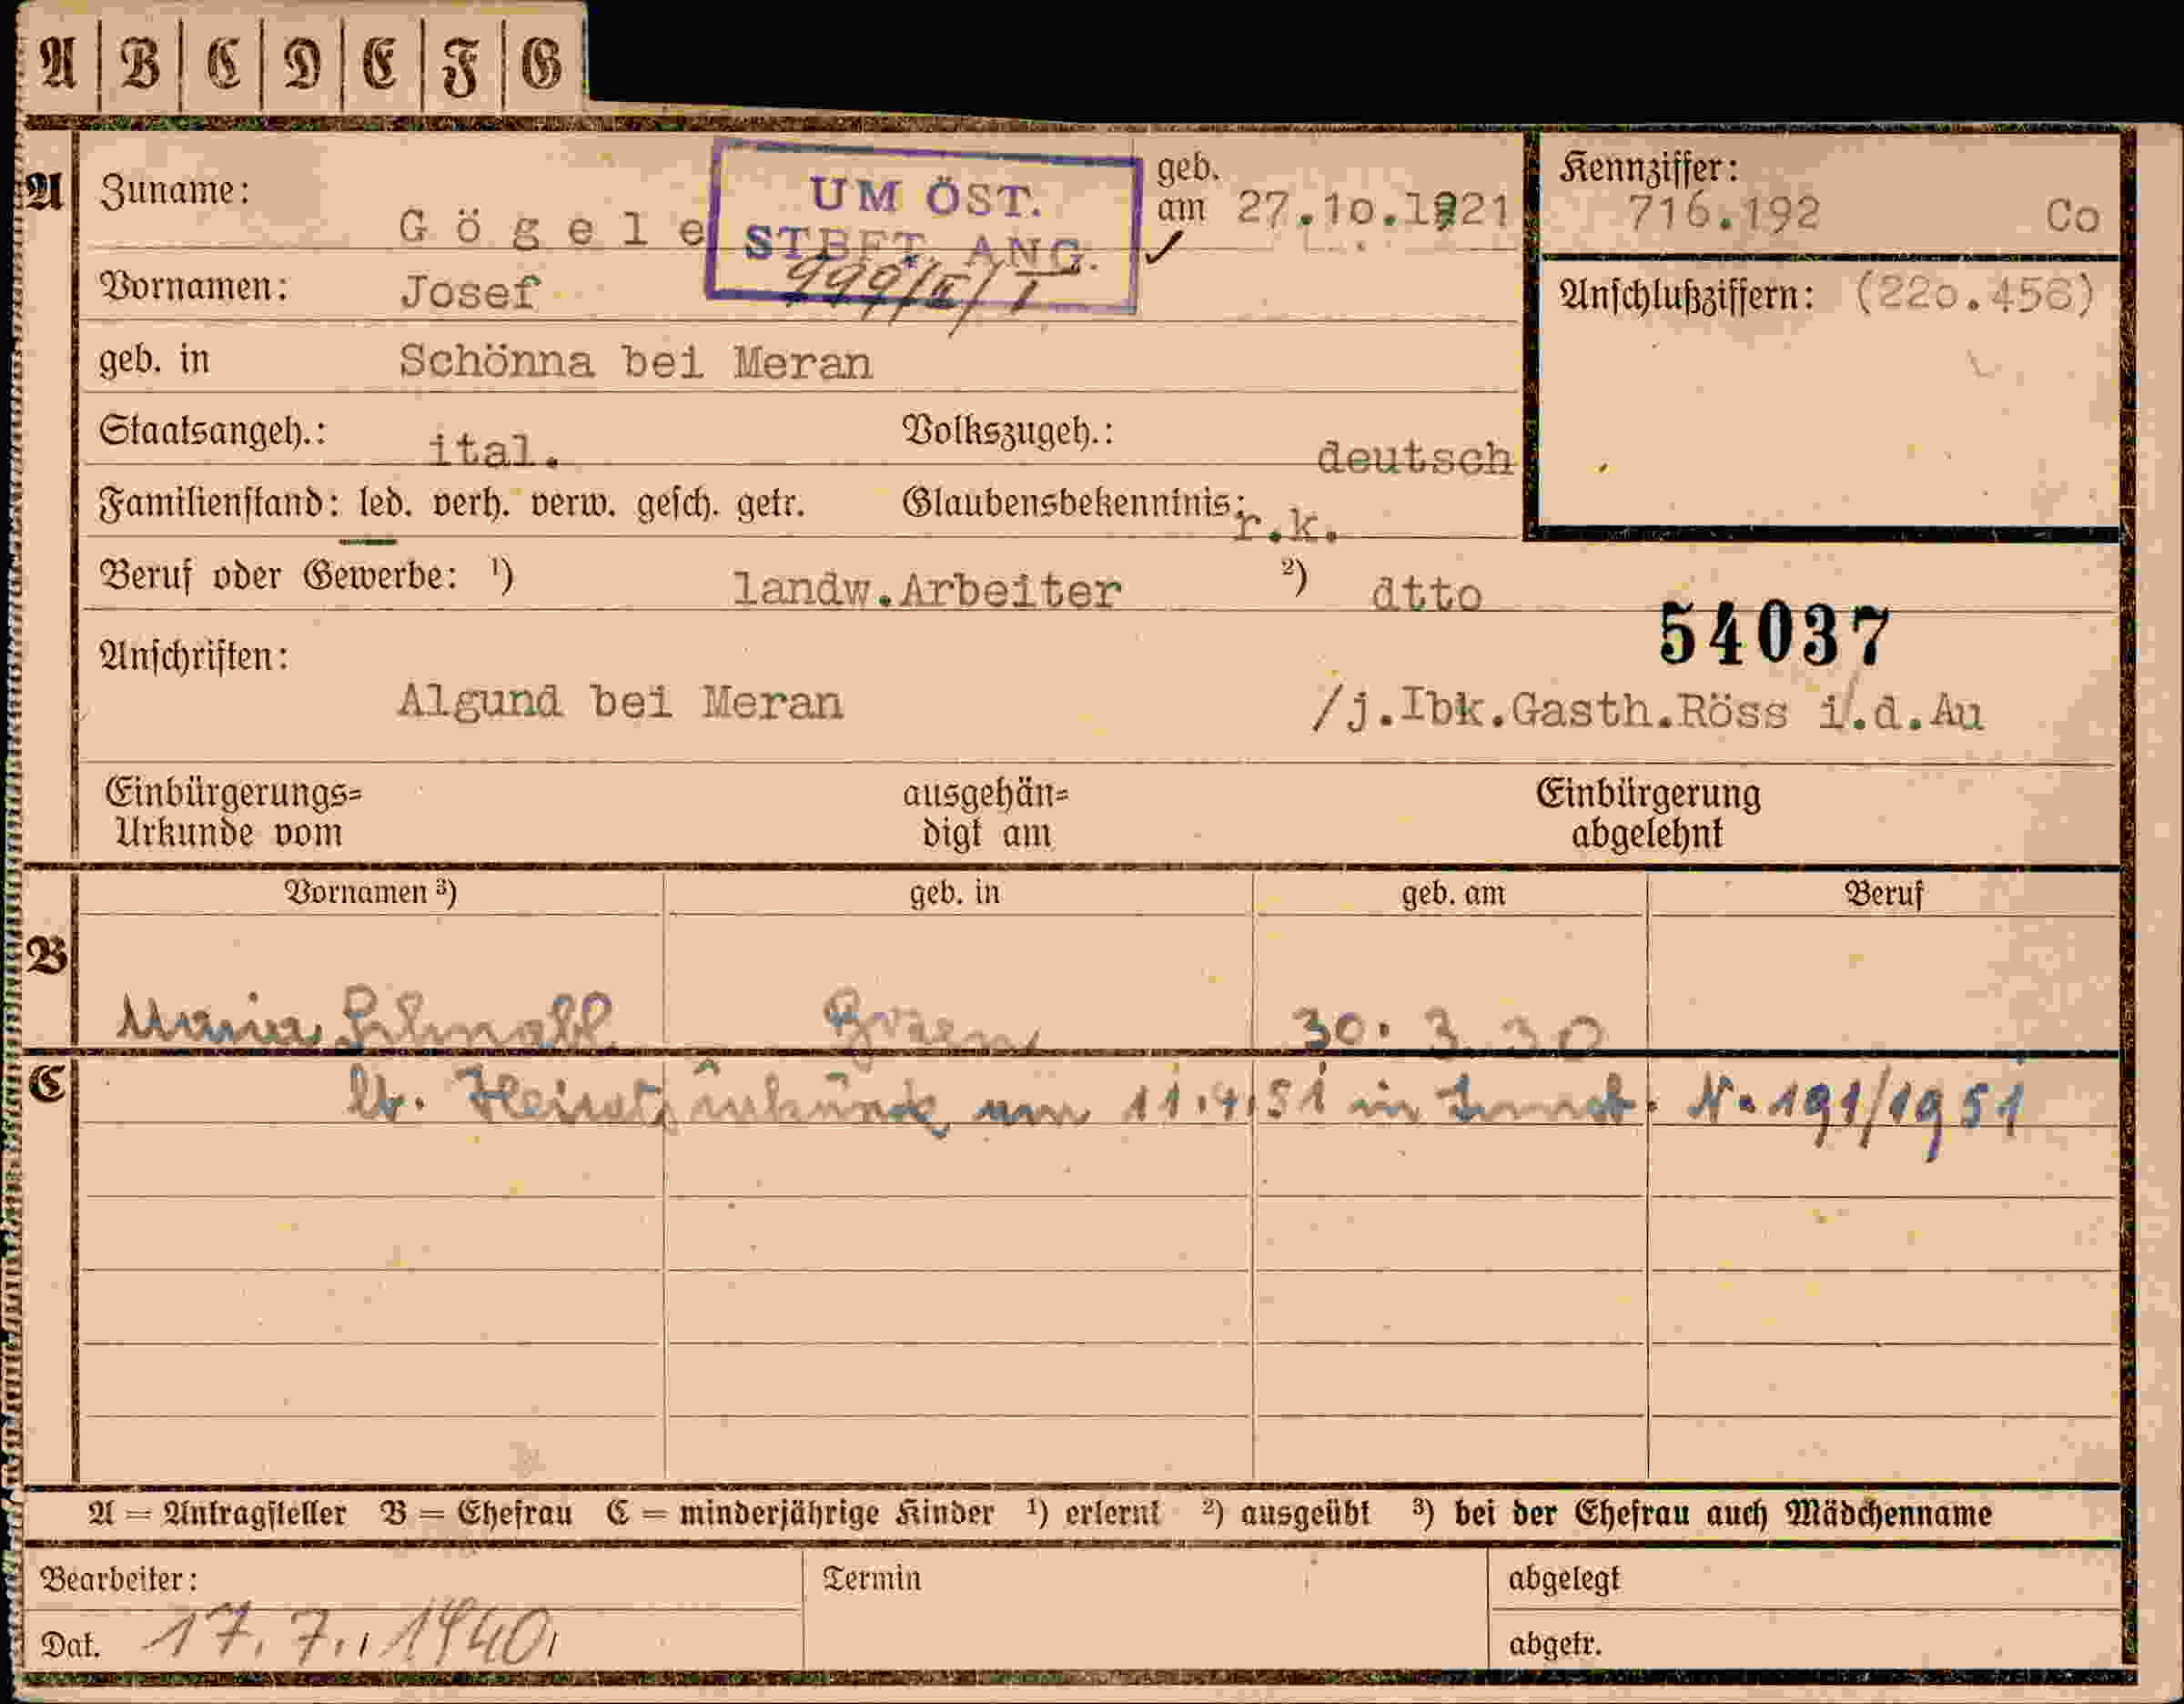 A B C D E F G
A Zuname: Gögele
UM ÖST.
STBFT. ANG.
999/II/I
geb. am 27.10.1921
Kennziffer: 716.192 Co
Vornamen: Josef
Anschlußziffern: (220.458)
geb. in Schönna bei Meran
Staatsangeh.: ital. Volkszugeh.: deutsch
Familienstand: led. verh. verw. gesch. getr. Glaubensbekenntnis: r.k.
Beruf oder Gewerbe: ¹) landw.Arbeiter ²) dtto
54037
Anschriften:
Algund bei Meran /j.Ibk.Gasth.Röss i.d.Au
Einbürgerungs= ausgehän= Einbürgerung
Urkunde vom digt am abgelehnt
Vornamen ³) geb. in geb. am Beruf
B
Maria Schnabl Bozen 30. 3. 30
C lt. Heiratsurkunde vom 11.4.51 in Innsb. N. 191/1951
A = Antragsteller B = Ehefrau C = minderjährige Kinder ¹) erlernt ²) ausgeübt ³) bei der Ehefrau auch Mädchenname
Bearbeiter: Termin abgelegt
Dat. 17. 7. 1940 abgetr.